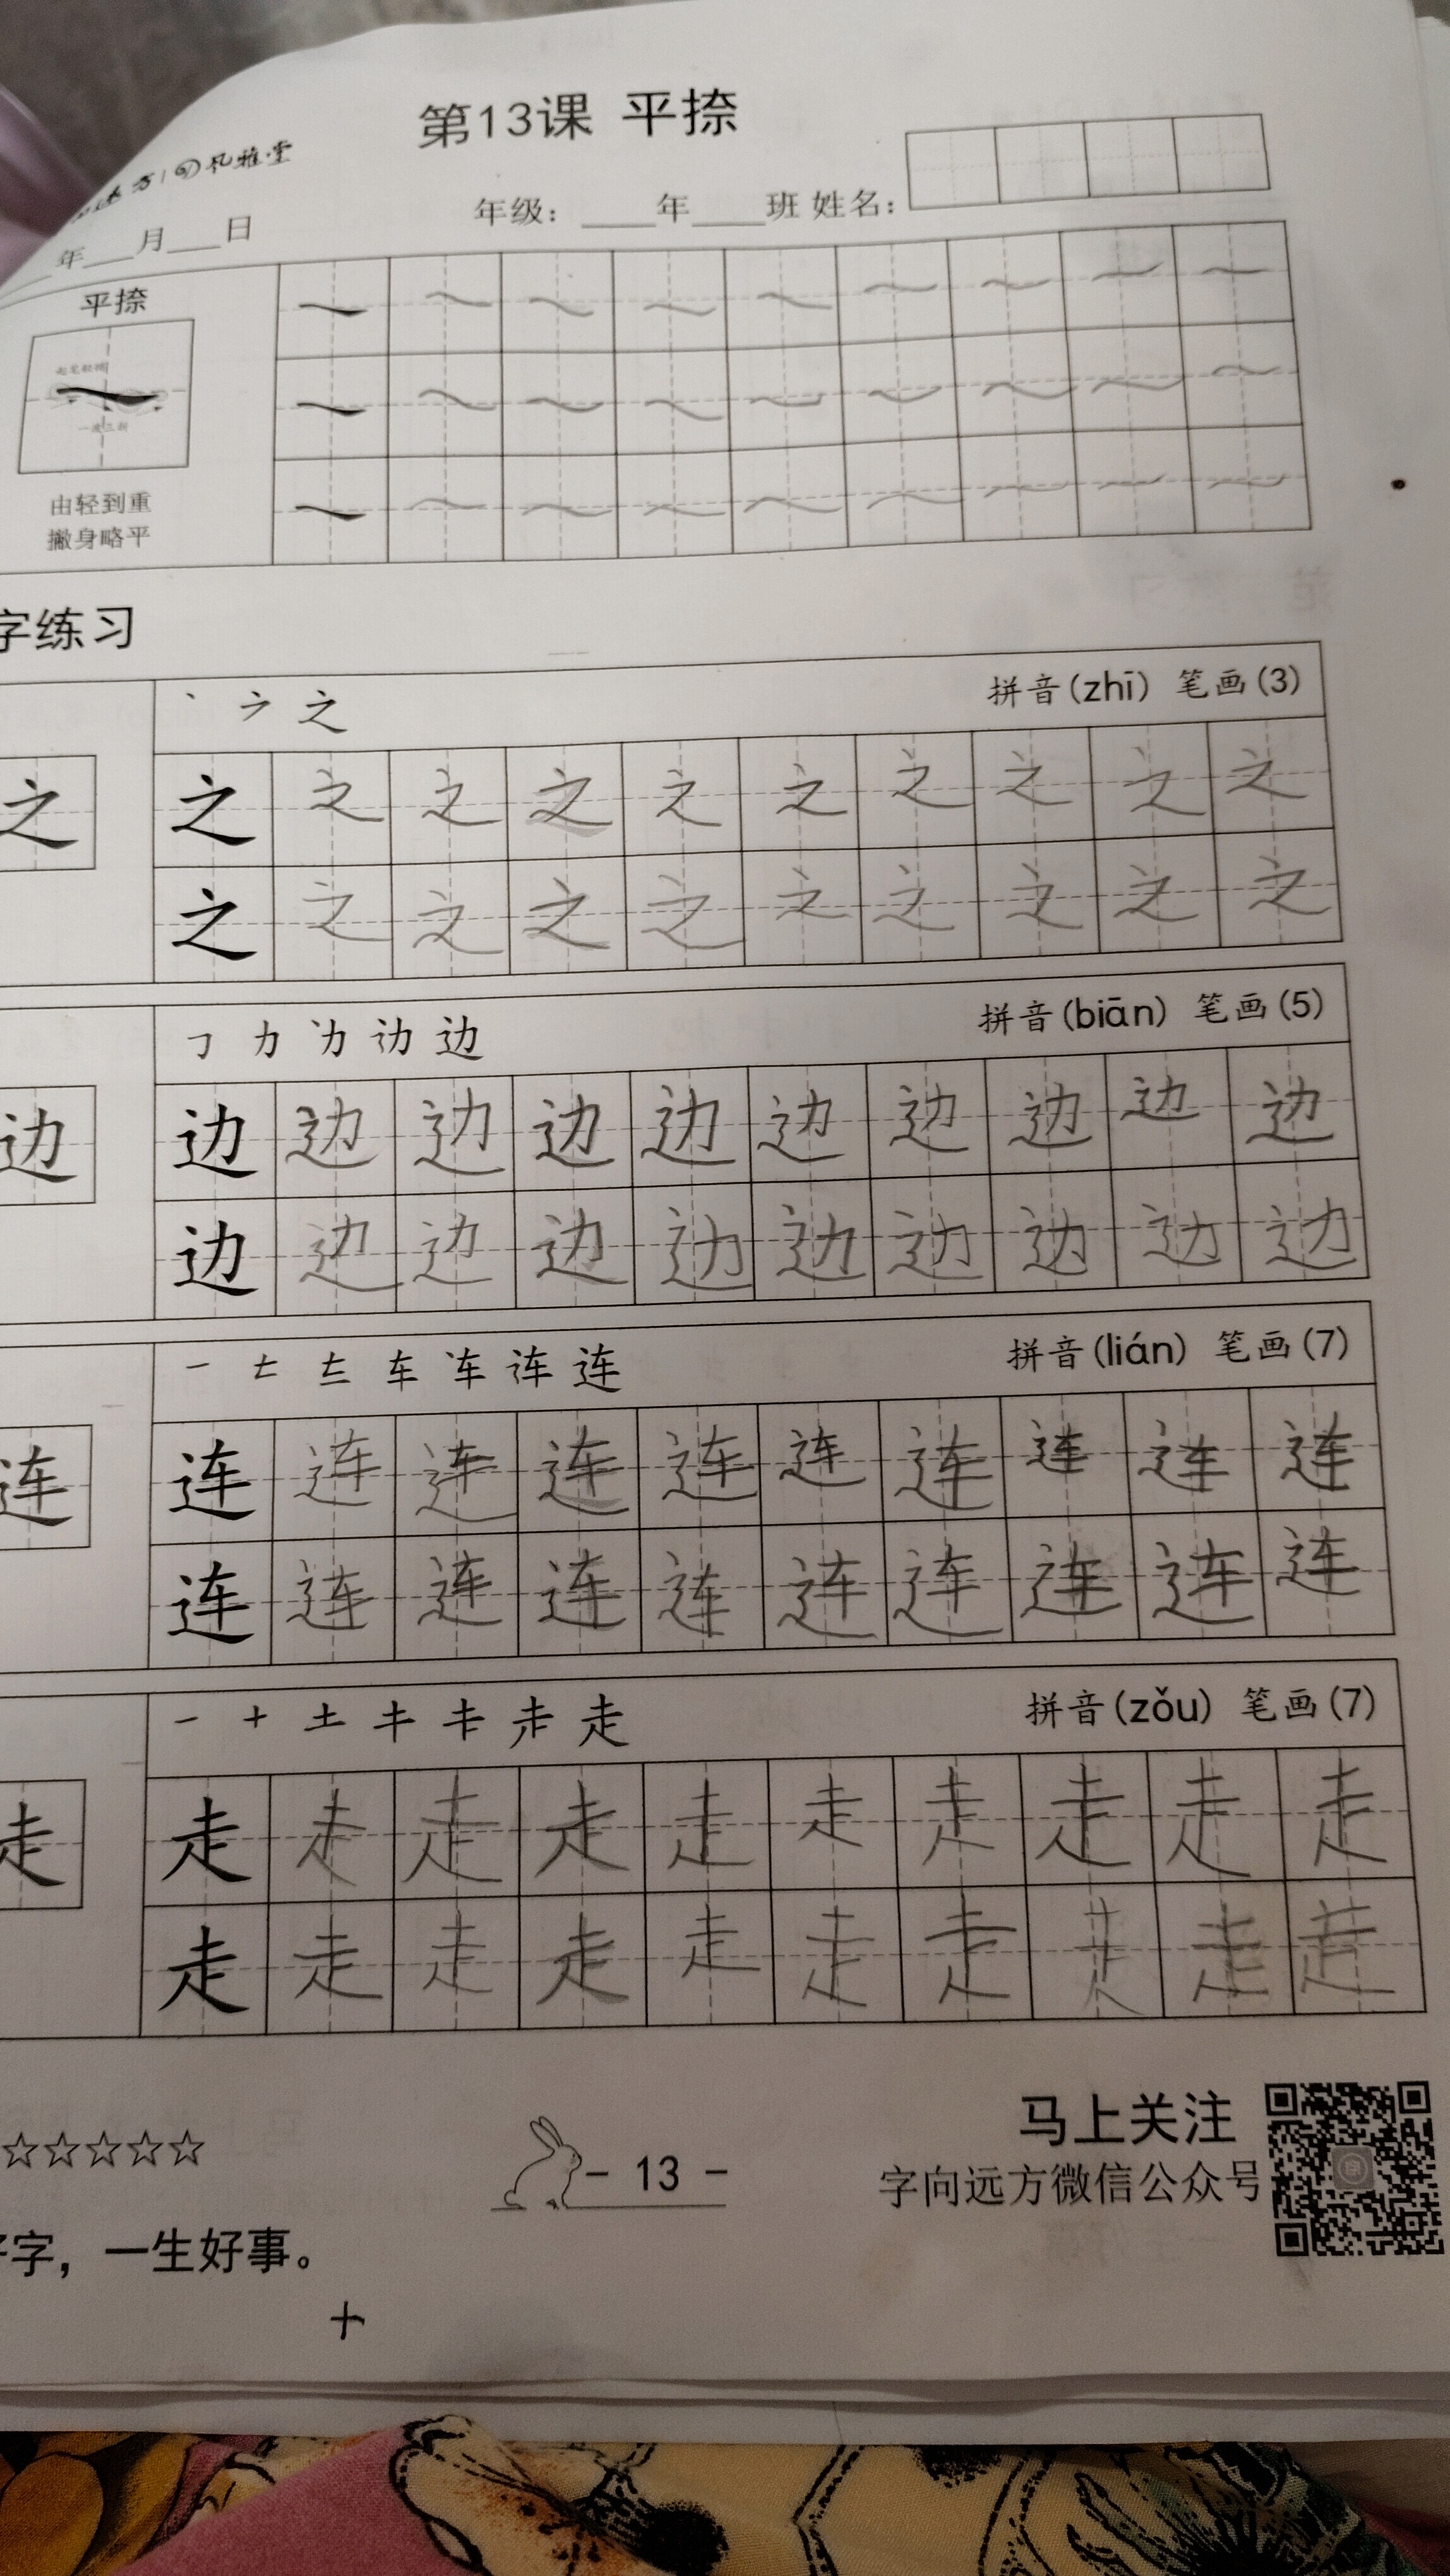 第13课 平捺
风雅堂
年 月 日
年级： 年 班 姓名：
平捺
一波三折
由轻到重
撇身略平
字练习
丶 之 拼音(zhī) 笔画(3)
之 之 之 之 之 之 之 之 之 之 之
之 之 之 之 之 之 之 之 之 之
力 边 拼音(biān) 笔画(5)
边 边 边 边 边 边 边 边 边 边 边
边 边 边 边 边 边 边 边 边 边
一 车 连 拼音(lián) 笔画(7)
连 连 连 连 连 连 连 连 连 连 连
连 连 连 连 连 连 连 连 连 连
一 十 土 走 拼音(zǒu) 笔画(7)
走 走 走 走 走 走 走 走 走 走 走
走 走 走 走 走 走 走 走 走 走
☆☆☆☆☆
- 13 -
马上关注
字向远方微信公众号
字，一生好事。
十